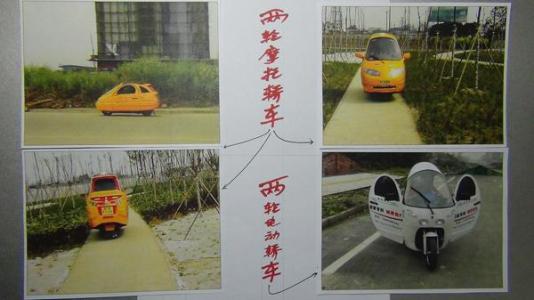 两轮摩托轿车
两轮电动轿车